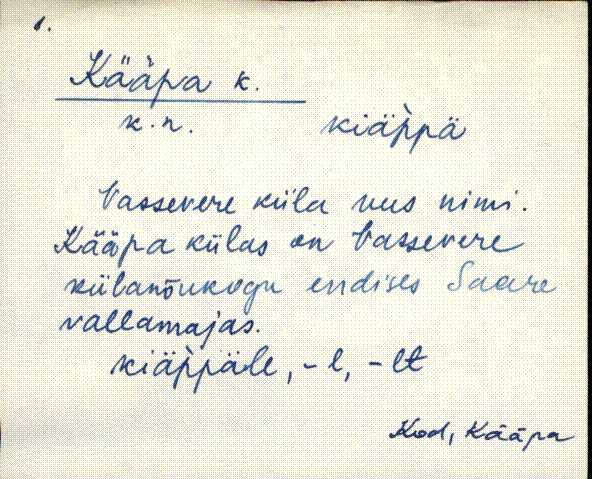 1.
Kääpa k.
k.n. kiäp̀pä
Vassevere küla uus nimi.
Kääpa külas on Vassevere
külanõukogu endises Saare
vallamajas.
kiäp̀päle, -l, -lt
Kod, Kääpa